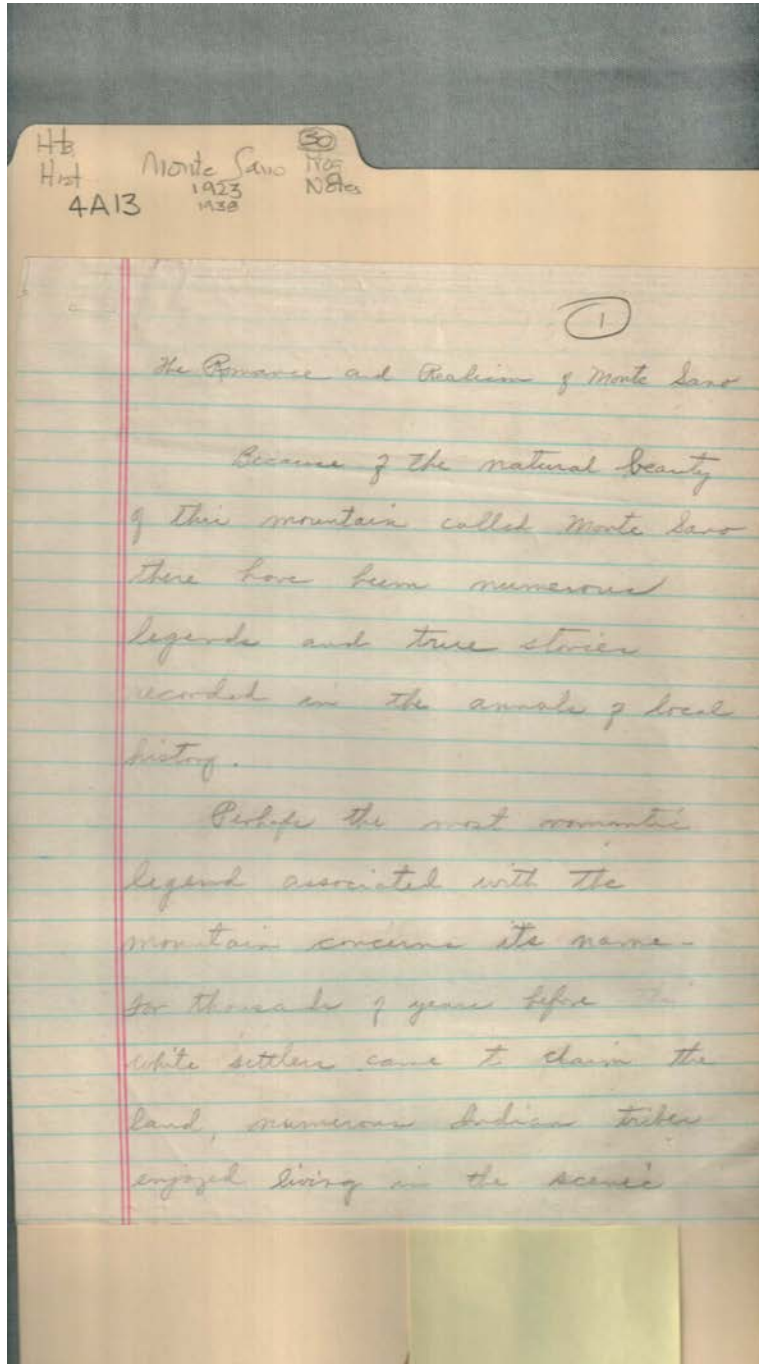 Hist
4A13
Monte Sano
1923
1938
30
Notes
1
The Romance and Realism of Monte Sano
Because of the natural beauty
of this mountain called Monte Sano
there have been numerous
legends and true stories
recorded in the annals of local
history.
Perhaps the most romantic
legend associated with the
mountain concerns its name -
For thousands of years before
white settlers came to claim the
land, numerous Indian tribes
enjoyed living in the scenic